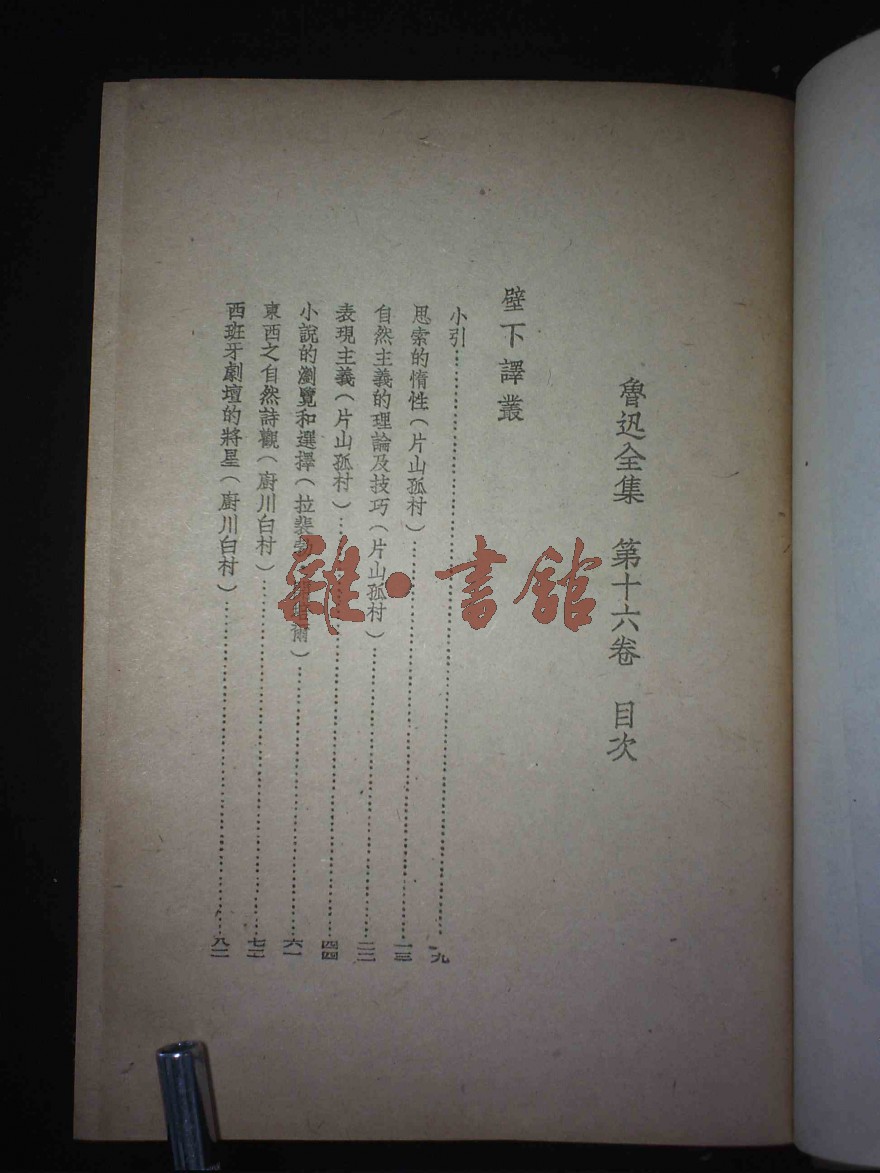 魯迅全集 第十六卷 目次
壁下譯叢
小引……一九
思索的惰性（片山孤村）……一三
自然主義的理論及技巧（片山孤村）……二二
表現主義（片山孤村）……四四
小說的瀏覽和選擇（拉裴勒 爾）……六一
東西之自然詩觀（廚川白村）……七二
西班牙劇壇的將星（廚川白村）……八二
雜·書館